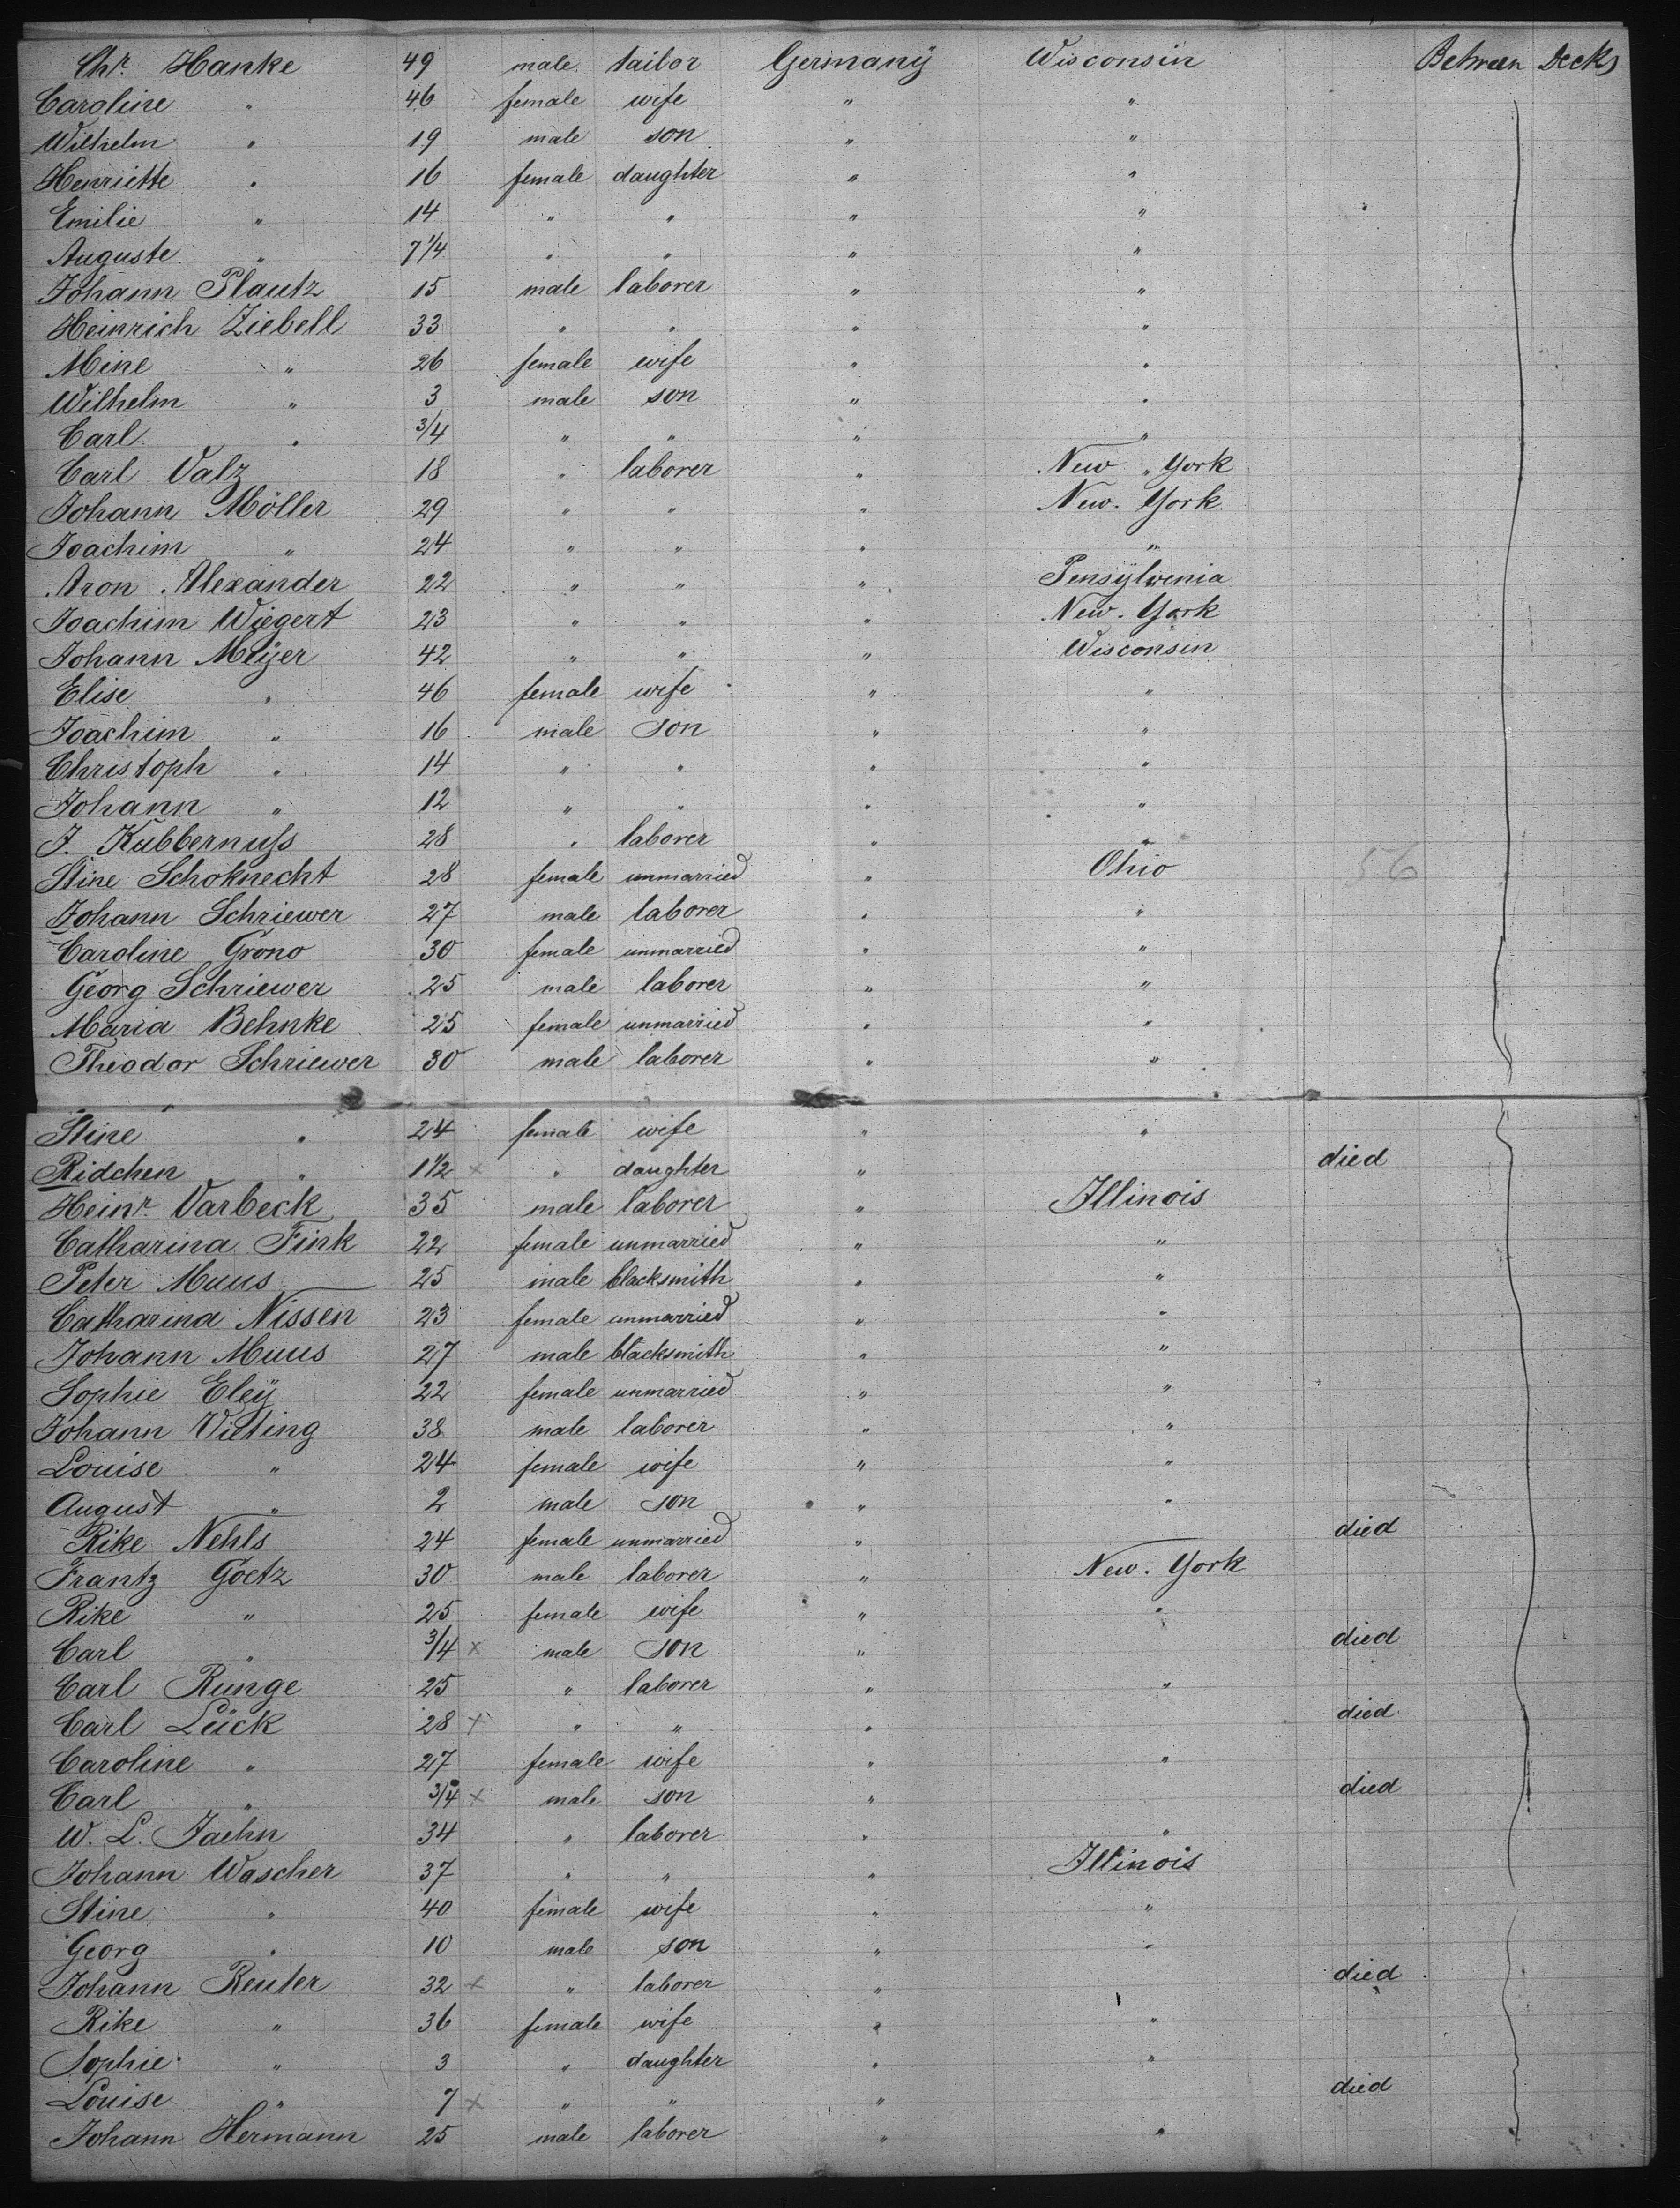 Chr. Hanke 49 male tailor Germany Wisconsin Between Decks
Caroline " 46 female wife " "
Wilhelm " 19 male son " "
Henriette " 16 female daughter " "
Emilie " 14 " " " "
Auguste " 7 1/4 " " " "
Johann Plautz 15 male laborer " "
Heinrich Ziebell 33 " " " "
Mine " 26 female wife " "
Wilhelm " 3 male son " "
Carl " 3/4 " " " "
Carl Valz 18 " laborer " New York
Johann Möller 29 " " " New. York
Joachim " 24 " " " "
Aron Alexander 22 " " " Pensylvenia
Joachim Wiegert 23 " " " New. York
Johann Meÿer 42 " " " Wisconsin
Elise " 46 female wife " "
Joachim " 16 male son " "
Christoph " 14 " " " "
Johann " 12 " " " "
J. Kubbernuss 28 " laborer " "
Stine Schoknecht 28 female unmarried " Ohio 56
Johann Schriewer 27 male laborer " "
Caroline Grono 30 female unmarried " "
Georg Schriewer 25 male laborer " "
Maria Behnke 25 female unmarried " "
Theodor Schriewer 30 male laborer " "
Stine " 24 female wife " "
Ridchen " 1 1/2 x " daughter " died
Heinr. Varbeck 35 male laborer " Illinois
Catharina Fink 22 female unmarried " "
Peter Muus 25 male blacksmith " "
Catharina Nissen 23 female unmarried " "
Johann Muus 27 male blacksmith " "
Sophie Eleÿ 22 female unmarried " "
Johann Vieting 38 male laborer " "
Louise " 24 female wife " "
August " 2 male son " "
Rike Nehls 24 female unmarried " died
Frantz Goetz 30 male laborer " New. York
Rike " 25 female wife " "
Carl " 3/4 x male son " died
Carl Runge 25 " laborer " "
Carl Lück 28 x " " " died
Caroline " 27 female wife " "
Carl " 3/4 x male son " died
W. L. Jaehn 34 " laborer " "
Johann Wascher 37 " " " Illinois
Stine " 40 female wife " "
Georg " 10 male son " "
Johann Reuter 32 x " laborer " died
Rike " 36 female wife " "
Sophie " 3 " daughter " "
Louise " 7 x " " " died
Johann Hermann 25 male laborer " "